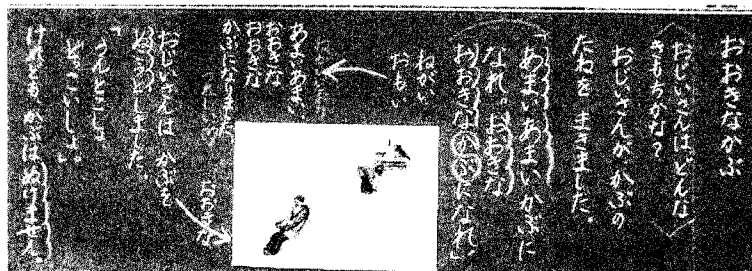 おおきなかぶ
おじいさんは、どんな
きもちかな？
おじいさんが かぶの
たねを まきました。
「あまいあまいかぶに
なれ。おおきな
おおきなかぶになれ。」
ねがい
おもい
あまいあまい、
おおきな
おおきな
かぶになりました
おおきな
おじいさんは かぶを
ぬこうとしました。
「うんとこしょ
どっこいしょ。」
けれども、かぶはぬけません。